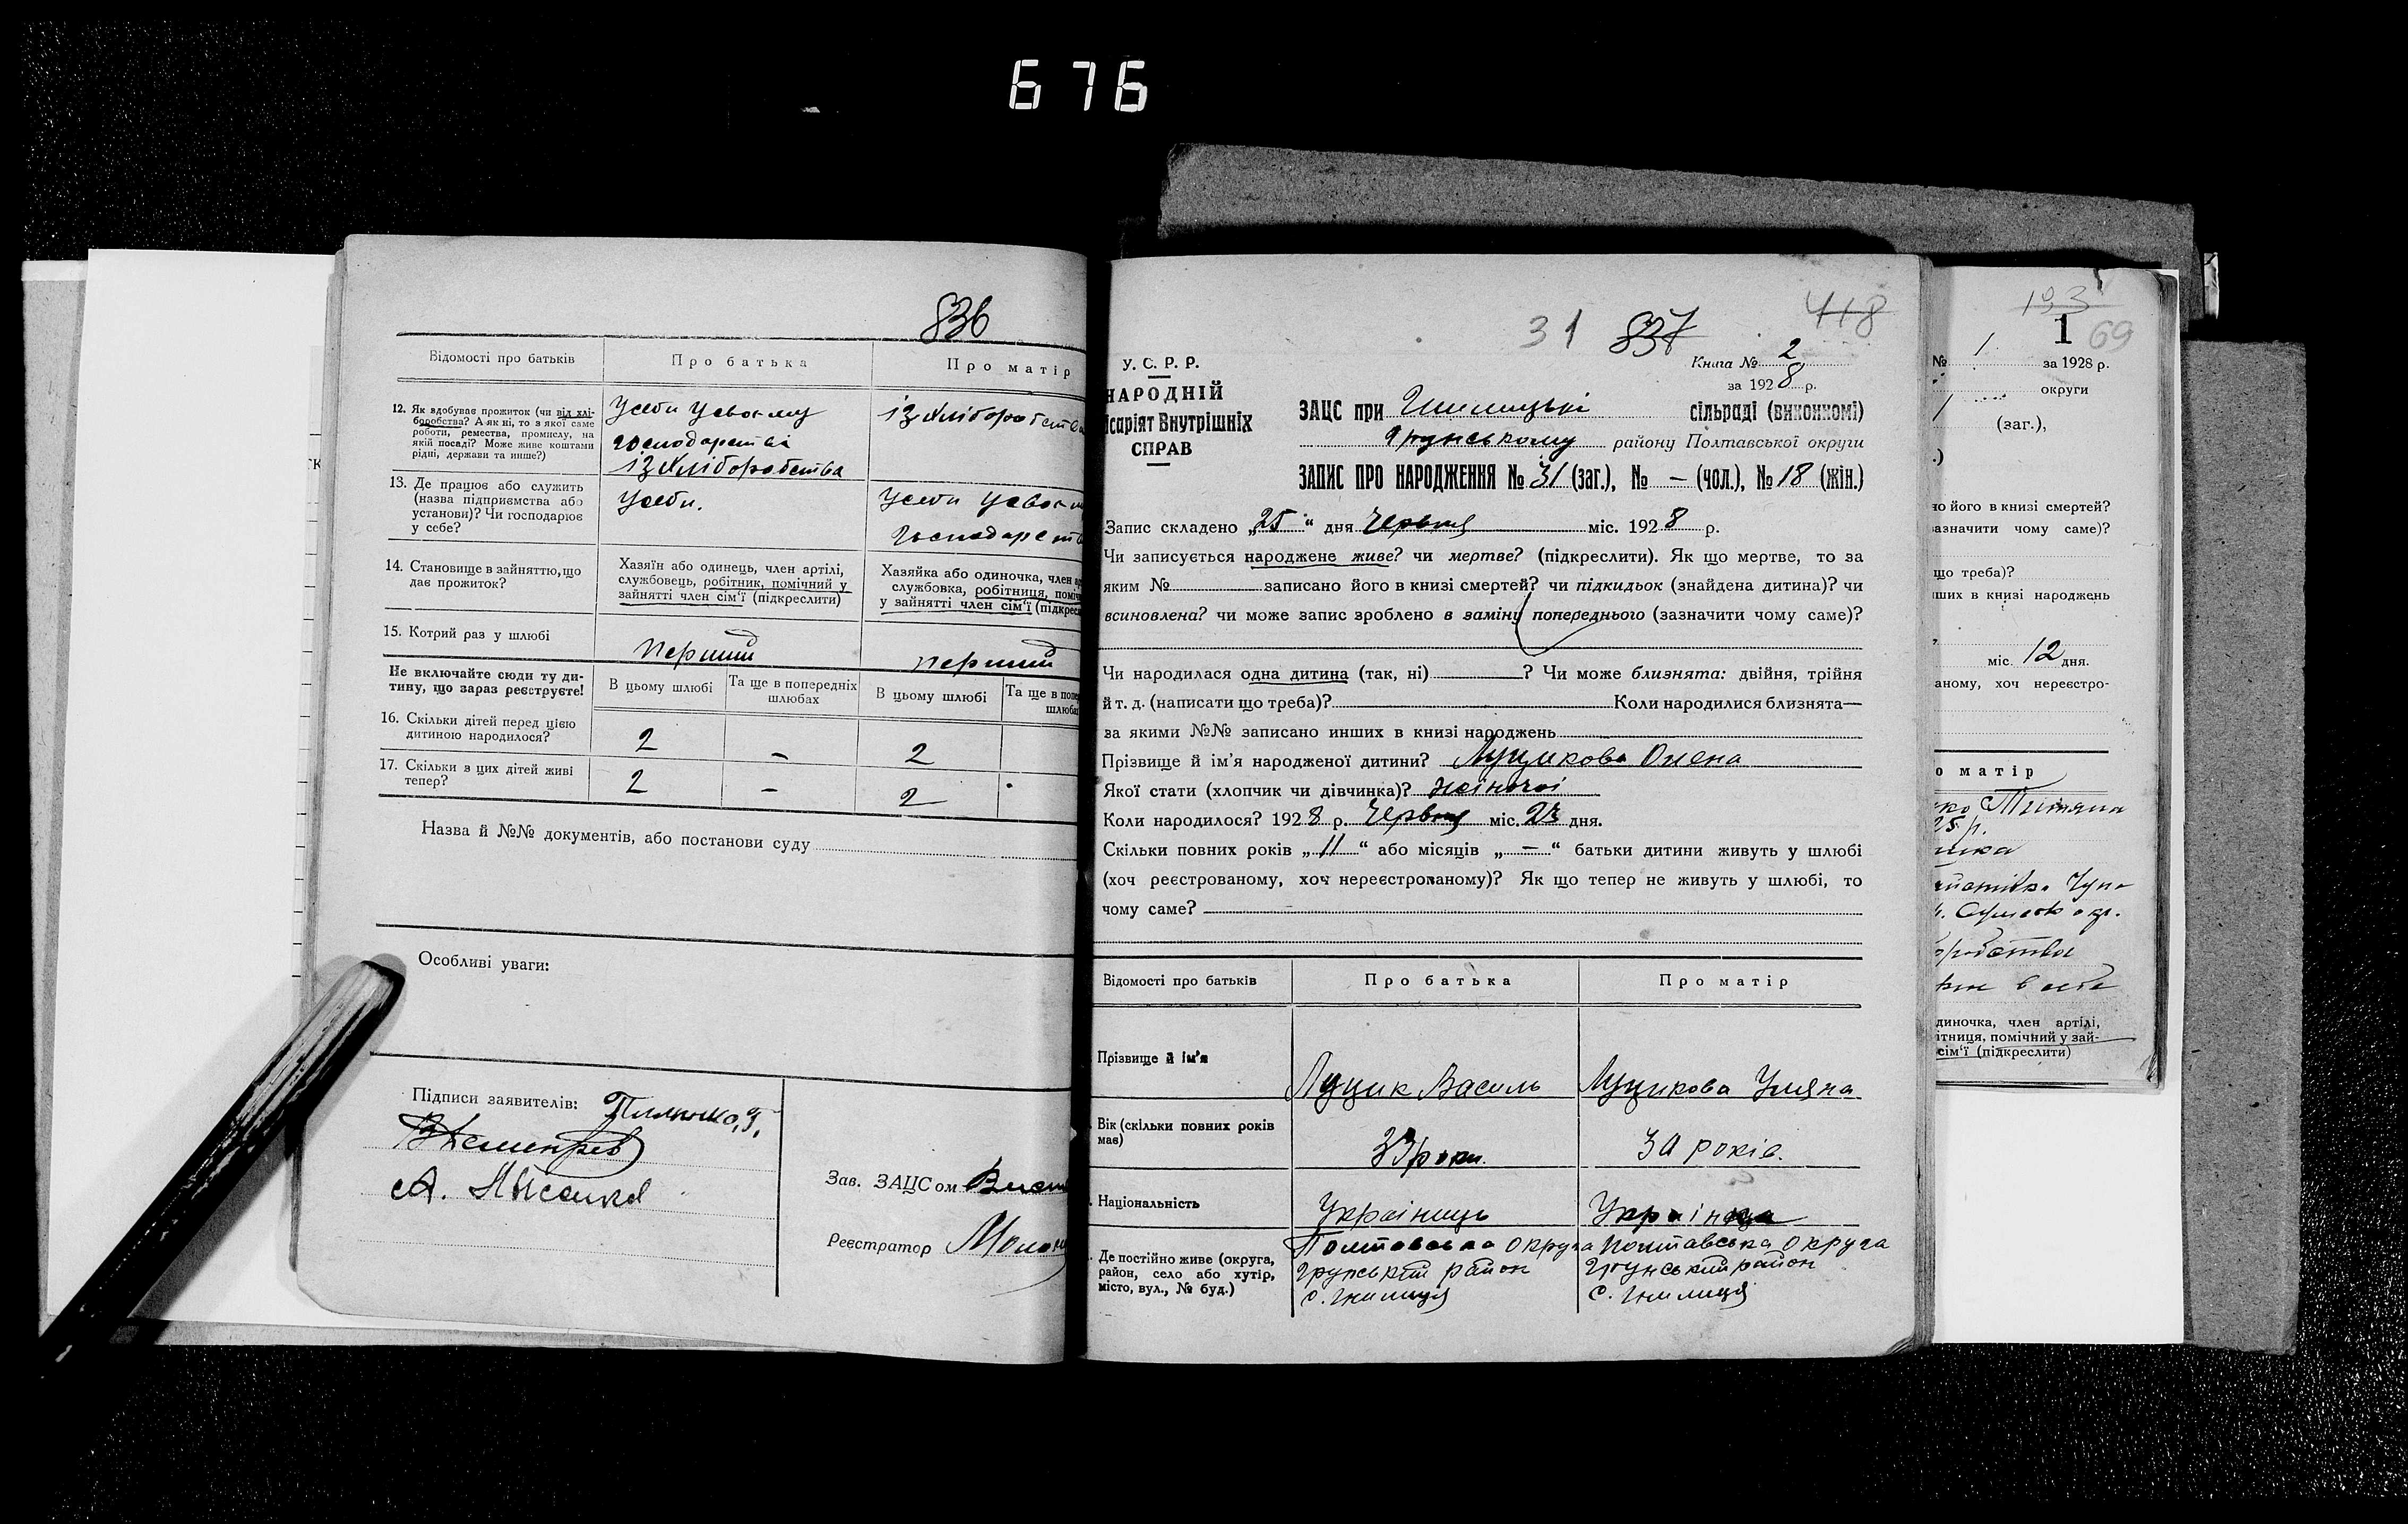 676
836
Відомості про батьків
Про батька
Про матір
12. Як здобуває прожиток (чи від хлі-
боробства? А як ні, то з якої саме
роботи, ремества, промислу, на
якій посаді? Може живе коштами
рідні, держави та инше?)
Усеби Усвоєму
господарстві
із хліборобства
із хліборобства
13. Де працює або служить
(назва підприємства або
установи)? Чи господарює
у себе?
Усеби.
Усеби
14. Становище в зайняттю, що
дає прожиток?
Хазяїн або одинець, член артілі,
службовець, робітник, помічний у
зайнятті член сім'ї (підкреслити)
Хазяйка або одиночка, член
службовка, робітниця,
у зайнятті член сім'ї
15. Котрий раз у шлюбі
перший
перший
Не включайте сюди ту ди-
тину, що зараз реєструєте!
В цьому шлюбі
Та ще в попередніх
шлюбах
В цьому шлюбі
Та ще в
16. Скільки дітей перед цією
дитиною народилося?
2 - 2
17. Скільки з цих дітей живі
тепер?
2 - 2
Назва й №№ документів, або постанови суду
Особливі уваги:
Підписи заявителів:
Зав. ЗАЦСом
Реєстратор
31 837 418
У. С. Р. Р.
НАРОДНІЙ
Внутрішніх
СПРАВ
Книга № 2
за 1928 р.
ЗАЦС при Гнилицькі сільраді (виконкомі)
Грунському району Полтавської округи
ЗАПИС ПРО НАРОДЖЕННЯ № 31 (заг.), № - (чол.), № 18 (жін.)
Запис складено „25“ дня Червня міс. 1928 р.
Чи записується народжене живе? чи мертве? (підкреслити). Як що мертве, то за
яким № записано його в книзі смертей? чи підкидьок (знайдена дитина)? чи
всиновлена? чи може запис зроблено в заміну попереднього (зазначити чому саме)?
Чи народилася одна дитина (так, ні) ? Чи може близнята: двійня, трійня
й т. д. (написати що треба)? Коли народилися близнята—
за якими №№ записано инших в книзі народжень
Прізвище й ім'я народженої дитини? Луцикова Олена
Якої стати (хлопчик чи дівчинка)? жіночої
Коли народилося? 1928 р. Червня міс. 23 дня.
Скільки повних років „11“ або місяців „—“ батьки дитини живуть у шлюбі
(хоч реєстрованому, хоч нереєстрованому)? Як що тепер не живуть у шлюбі, то
чому саме?
Відомості про батьків
Про батька
Про матір
Прізвище й ім'я
Луцик Василь
Луцикова Уляна
Вік (скільки повних років
має)
33 роки.
30 років.
Національність
Українець
Українка
Де постійно живе (округа,
район, село або хутір,
місто, вул., № буд.)
Полтавська округа
Грунський район
с. Гнилиця
Полтавська округа
Грунський район
с. Гнилиця
193
1 69
№ 1 за 1928 р.
округи
(заг.),
його в книзі смертей?
зазначити чому саме)?
що треба)?
в книзі народжень
міс. 12 дня.
хоч нереєстро-
матір
Тетяна
25 р.
член артілі,
помічний у зай-
сім'ї (підкреслити)